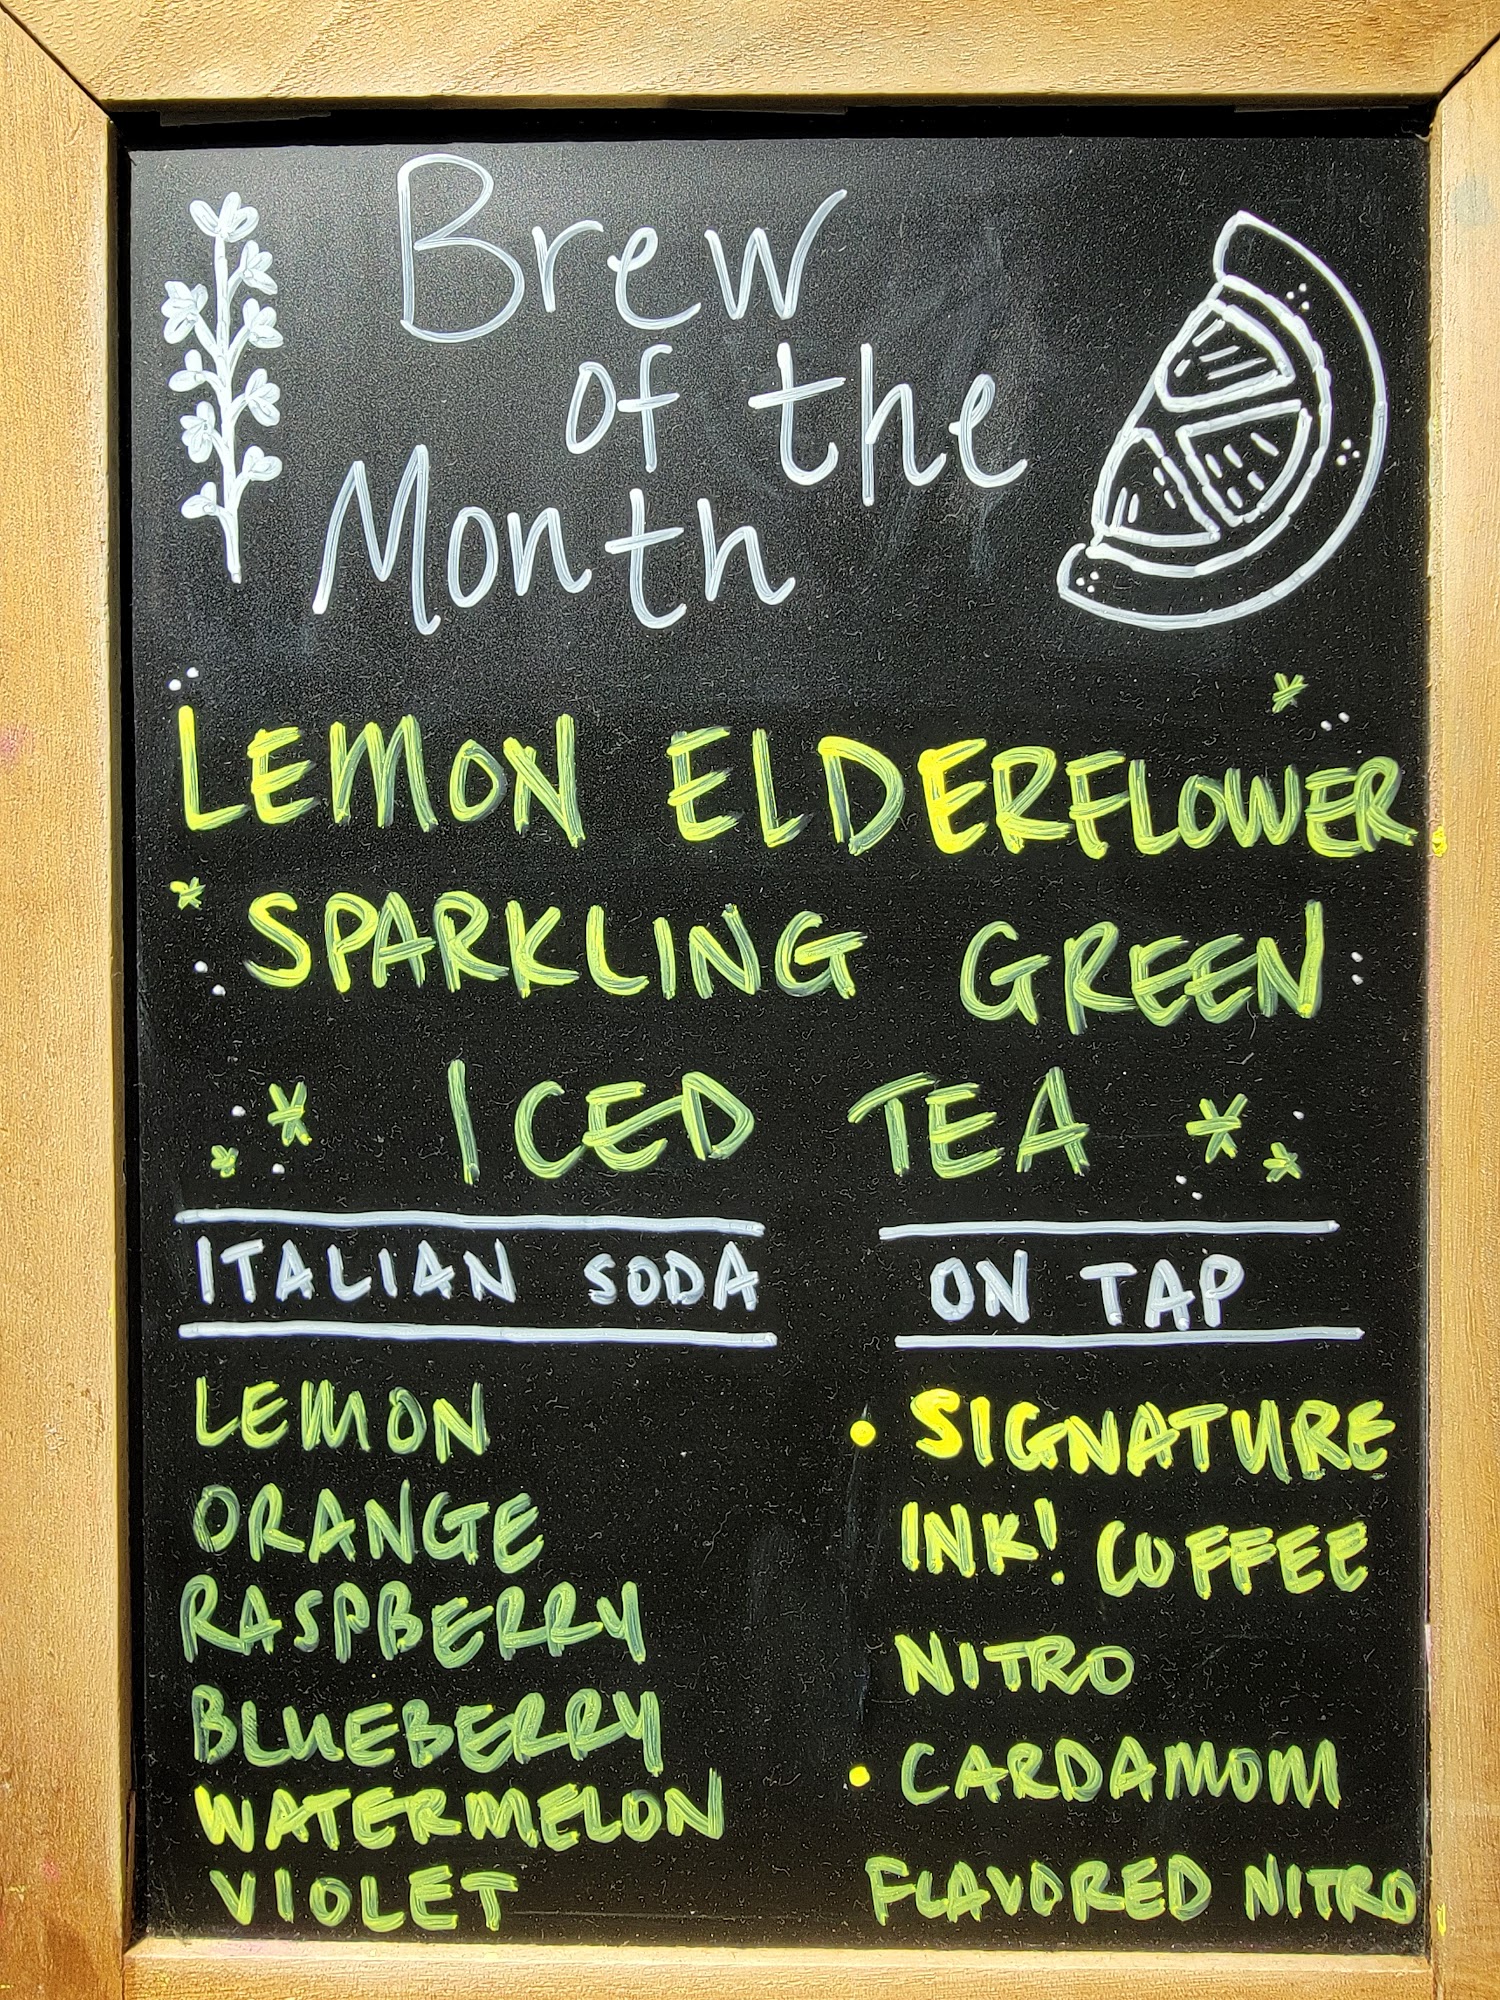 Brew
of the
Month
LEMON ELDERFLOWER
SPARKLING GREEN
ICED TEA
ITALIAN SODA
LEMON
ORANGE
RASPBERRY
BLUEBERRY
WATERMELON
VIOLET
ON TAP
• SIGNATURE
INK! COFFEE
NITRO
• CARDAMOM
FLAVORED NITRO